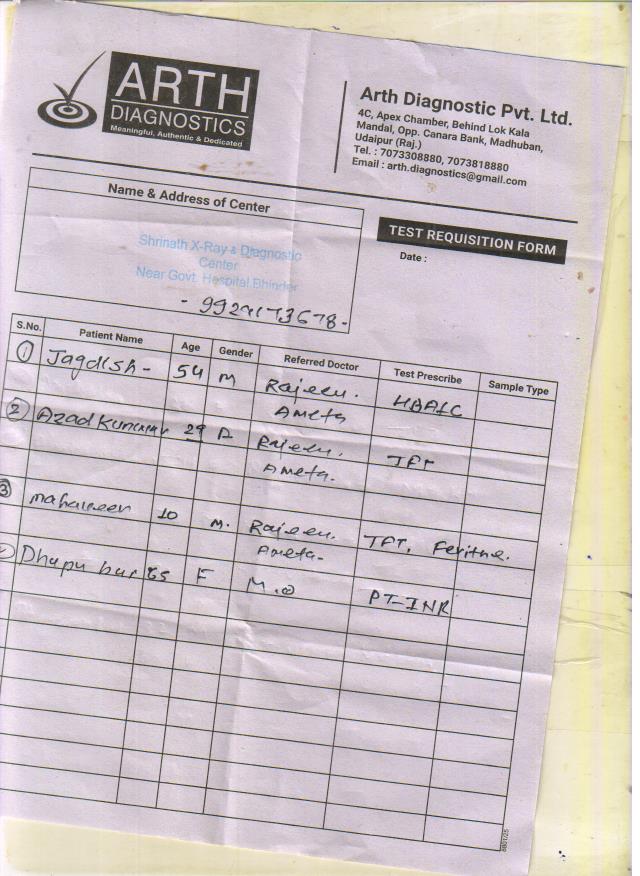 ARTH
DIAGNOSTICS
Meaningful, Authentic & Dedicated
Arth Diagnostic Pvt. Ltd.
4C, Apex Chamber, Behind Lok Kala
Mandal, Opp. Canara Bank, Madhuban,
Udaipur (Raj.)
Tel. : 7073308880, 7073818880
Email : arth.diagnostics@gmail.com
Name & Address of Center
Shrinath X-Ray & Diagnostic
Center
Near Govt. Hospital Bhinder
TEST REQUISITION FORM
Date :
S.No. Patient Name Age Gender Referred Doctor Test Prescribe Sample Type
1 Jagdish - 54 M Rajeev. HbA1C
Ameta
2 Azad Kunwar 29 Rajeev. TFT
Ameta.
3 mahaveer 10 M. Rajeev. TFT, Feritne.
Ameta.
Dhapu bai 65 F M.O PT-INR